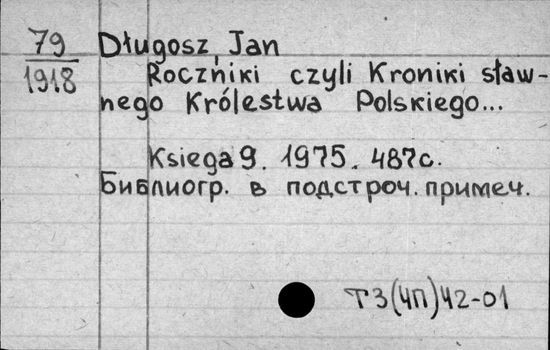 79
1918
Długosz, Jan
Roczniki czyli Kroniki sław-
nego Królestwa Polskiego...
Księga 9. 1975. 487с.
Библиогр. в подстроч. примеч.
Т3(4П)42-01